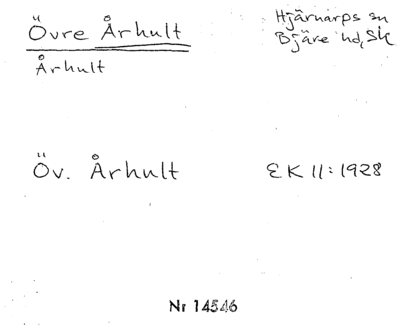 Övre Århult
Århult
Hjärnarps sn
Bjäre hd, Sk
Öv. Århult
EK 11:1928
Nr 14546